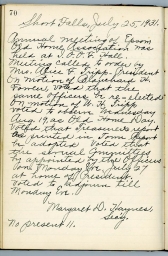 70
Short Falls, July 25, 1931.
Annual meeting of Epsom
Old Home Association was
held at I.O.O.F. Hall.
Meeting called to order by
Mrs. Alice E. Tripp, President
On motion of H.
Fowler, voted that the
same officers be re-elected
on motion of W. H. Tripp
voted to observe Wednesday
Aug. 19, as Old Home Day.
Voted that Treasurer's report
as printed in Town Report
be adopted. Voted that
a Social Committee
be appointed by the Officers
on Monday Eve. July 27
at home of President.
Voted to adjourn till
Monday Eve.
Margaret D. Haynes,
Secty.
No present 11.